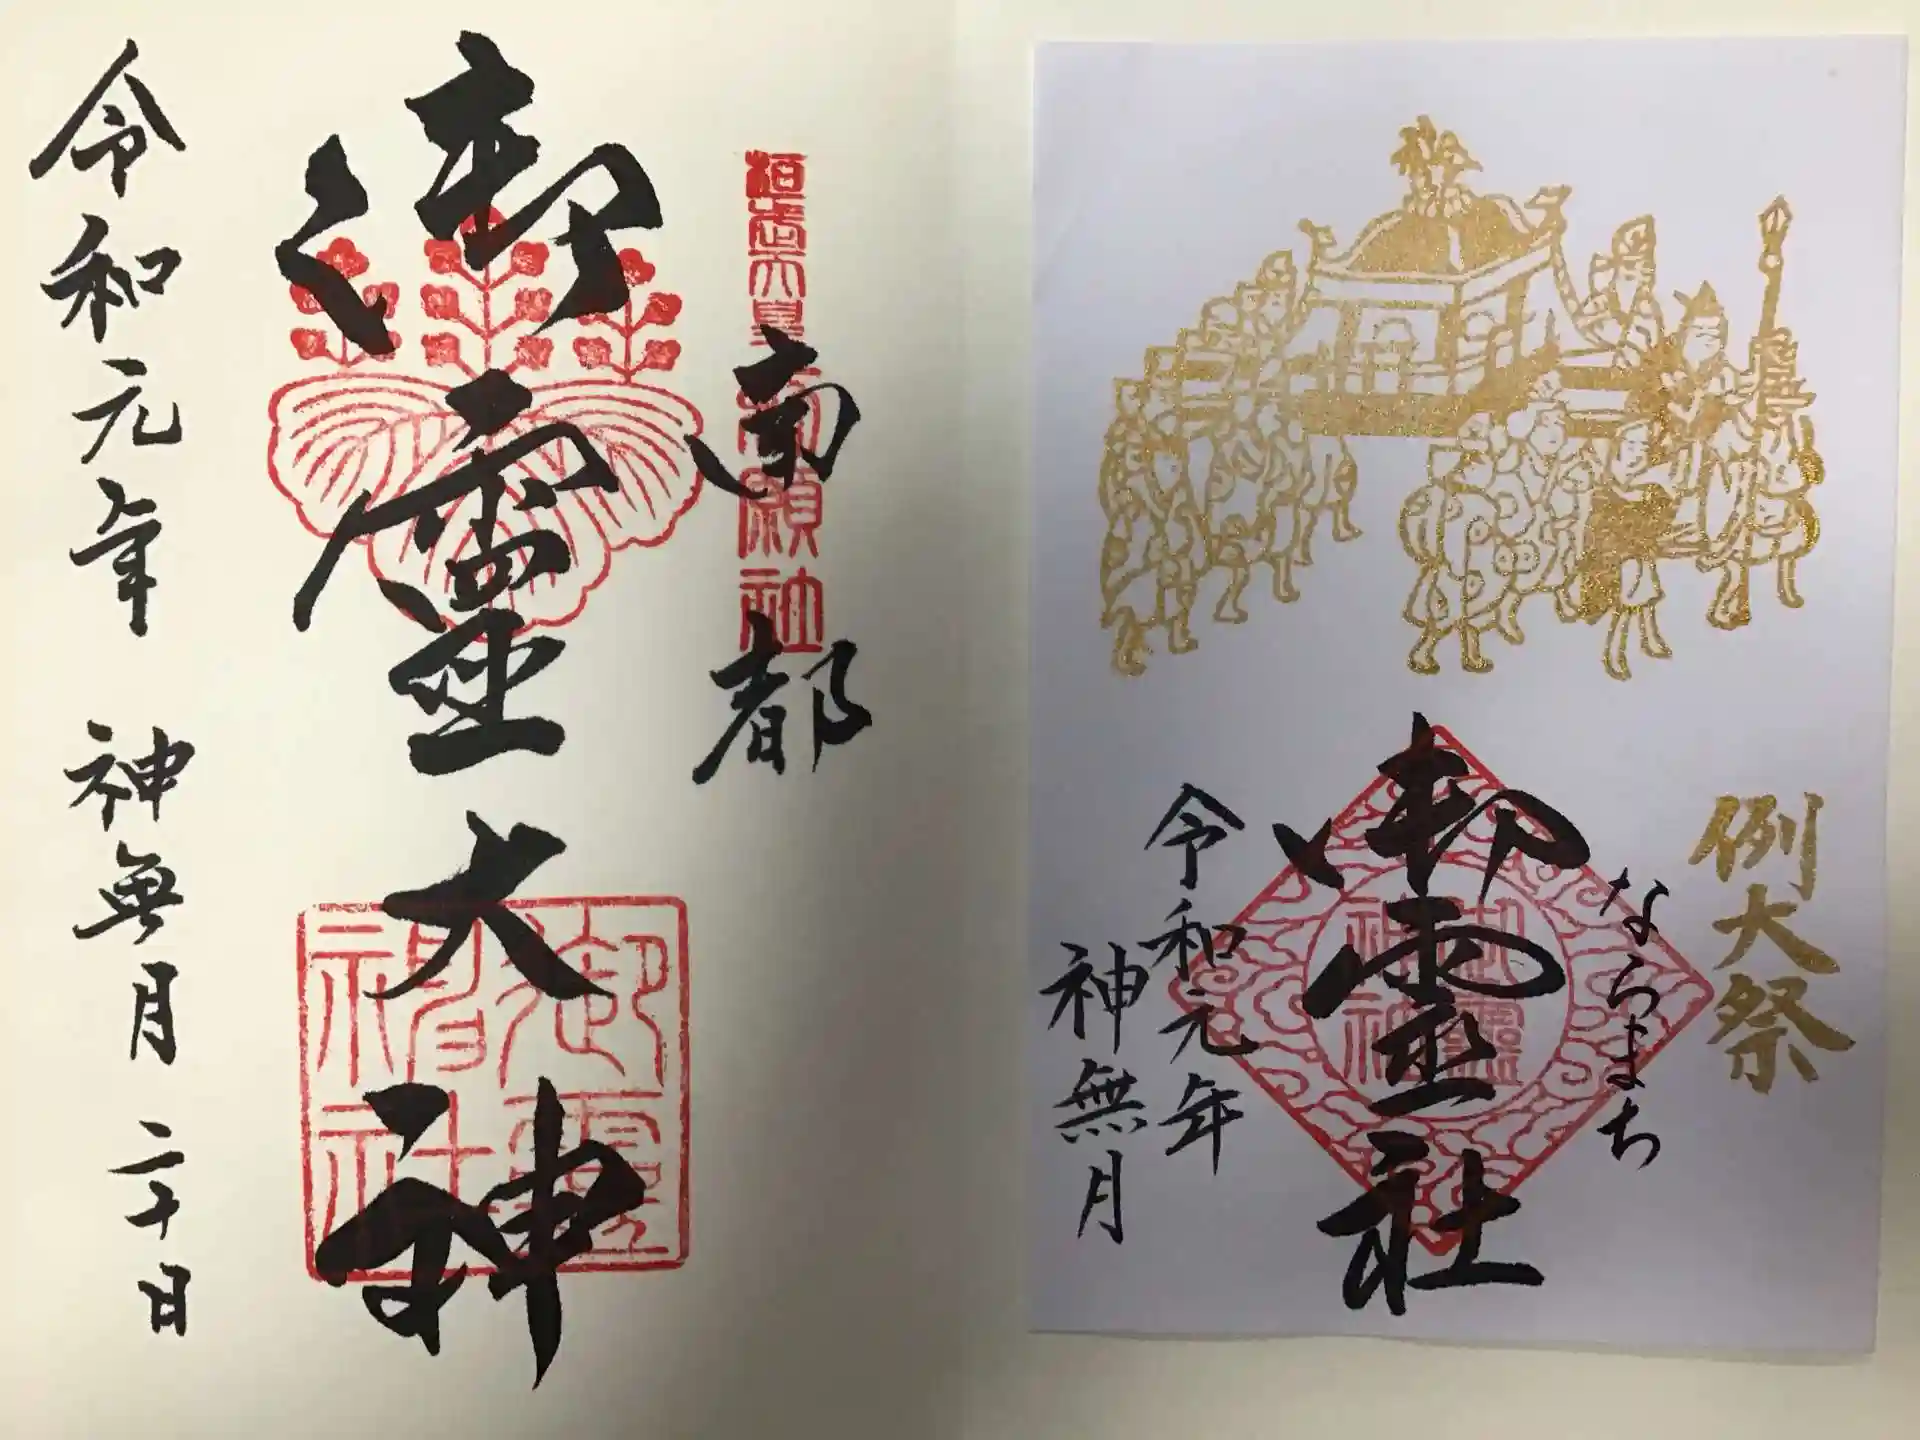 桓武天皇御願社
南都
御霊大神
御霊神社
令和元年 神無月 二十日
例大祭
ならまち
御霊社
御霊神社
令和元年
神無月